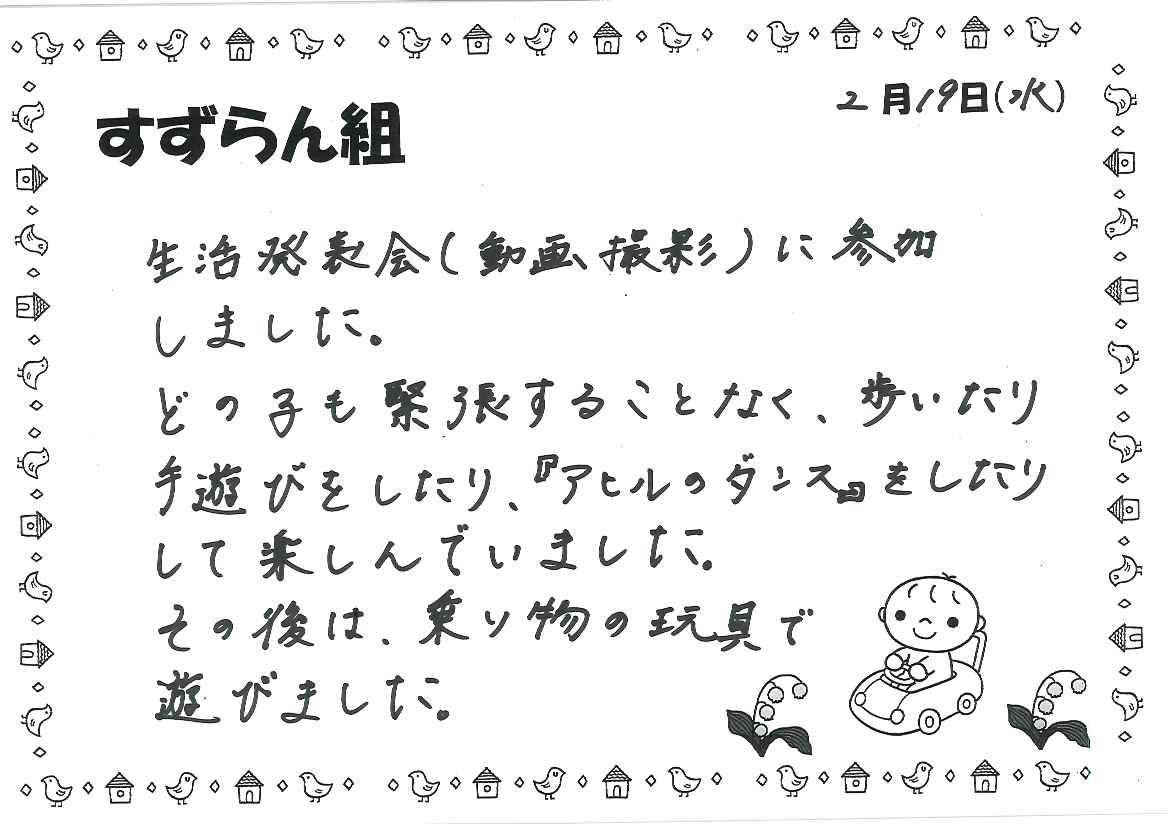 2月19日(水)
すずらん組
生活発表会(動画撮影)に参加
しました。
どの子も緊張することなく、歩いたり
手遊びをしたり、『アヒルのダンス』をしたり
して楽しんでいました。
その後は、乗り物の玩具で
遊びました。